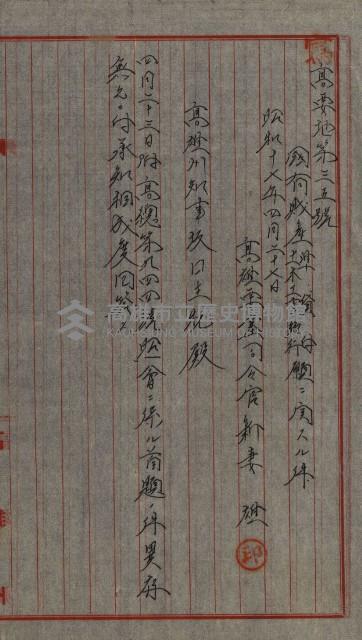 高要地第三五號
國有財產
願ニ関スル件
昭和十七年四月二十七日
高雄要塞司令官新妻雄
印
高雄州知事坂口主税殿
四月二十三日附高總第九四四號照會ニ係ル首題ノ件異存
無之ニ付承知相成度回答ス
高雄市立歷史博物館
KAOHSIUNG MUSEUM OF HISTORY
雄
州